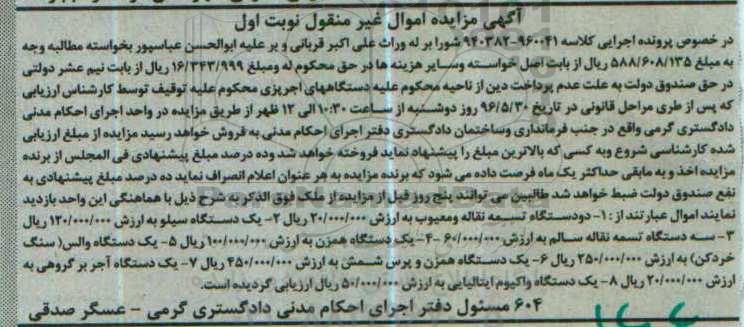 آگهی مزایده اموال غیر منقول نوبت اول
در خصوص پرونده اجرایی کلاسه ۹۶۰۰۴۱-۹۴۰۳۸۲ شورا بر له وراث علی اکبر قربانی و بر علیه ابوالحسن عباسپور بخواسته مطالبه وجه
به مبلغ ۵۸۸/۶۰۸/۱۳۵ ریال از بابت اصل خواسته وسایر هزینه ها در حق محکوم له ومبلغ ۱۶/۳۴۳/۹۹۹ ریال از بابت نیم عشر دولتی
در حق صندوق دولت به علت عدم پرداخت دین از ناحیه محکوم علیه دستگاههای اجرپزی محکوم علیه توقیف توسط کارشناس ارزیابی
که پس از طری مراحل قانونی در تاریخ ۹۶/۵/۳۰ روز دوشنبه از ساعت ۱۰:۳۰ الی ۱۲ ظهر از طریق مزایده در واحد اجرای احکام مدنی
دادگستری گرمی واقع در جنب فرمانداری وساختمان دادگستری دفتر اجرای احکام مدنی به فروش خواهد رسید مزایده از مبلغ ارزیابی
شده کارشناسی شروع وبه کسی که بالاترین مبلغ را پیشنهاد نماید فروخته خواهد شد وده درصد مبلغ پیشنهادی فی المجلس از برنده
مزایده اخذ و به مابقی حداکثر یک ماه فرصت داده می شود که برنده مزایده به هر عنوان اعلام انصراف نماید ده درصد مبلغ پیشنهادی به
نفع صندوق دولت ضبط خواهد شد طالبین می توانند پنج روز قبل از مزایده از ملک فوق الذکر به شرح ذیل با هماهنگی این واحد بازدید
نمایند اموال عبارتند از : ۱- دودستگاه تسمه نقاله ومعیوب به ارزش ۲۰/۰۰۰/۰۰۰ ریال ۲- یک دستگاه سیلو به ارزش ۱۲۰/۰۰۰/۰۰۰ ریال
۳- سه دستگاه تسمه نقاله سالم به ارزش ۶۰/۰۰۰/۰۰۰ ۴- یک دستگاه همزن به ارزش ۱۰۰/۰۰۰/۰۰۰ ریال ۵- یک دستگاه والس( سنگ
خردکن) به ارزش ۲۵۰/۰۰۰/۰۰۰ ریال ۶- یک دستگاه همزن و پرس شمش به ارزش ۴۵۰/۰۰۰/۰۰۰ ریال ۷- یک دستگاه آجر بر گروهی به
ارزش ۲۰/۰۰۰/۰۰۰ ریال ۸- یک دستگاه واکیوم ایتالیایی به ارزش ۵۰/۰۰۰/۰۰۰ ریال ارزیابی گردیده است.
۶۰۴ مسئول دفتر اجرای احکام مدنی دادگستری گرمی - عسگر صدقی